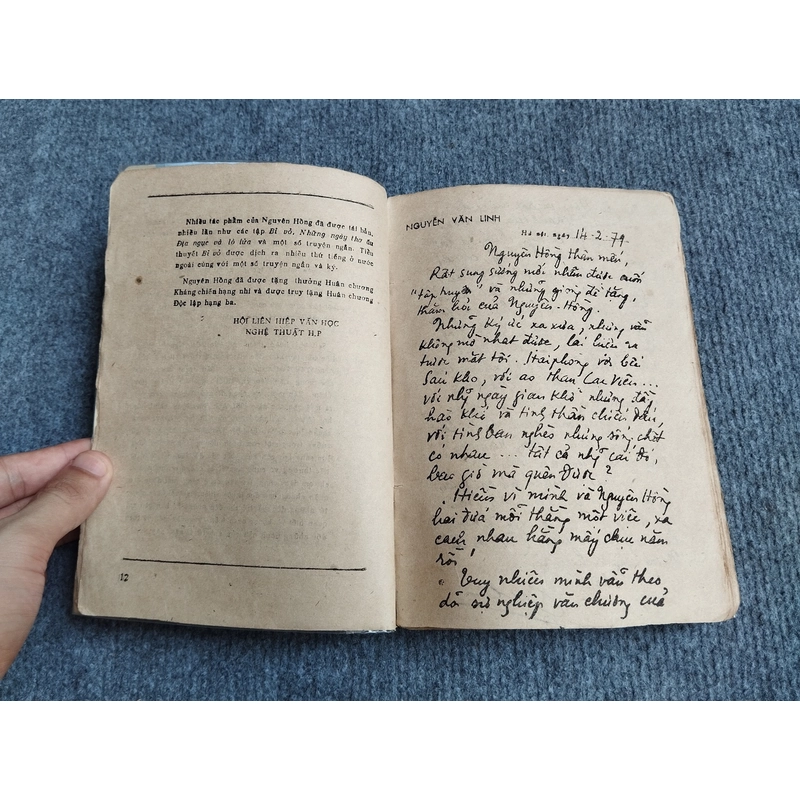 Nhiều tác phẩm của Nguyên Hồng đã được tái bản,
nhiều lần như các tập Bỉ vỏ, Những ngày thơ ấu
Địa ngục và lò lửa và một số truyện ngắn. Tiểu
thuyết Bỉ vỏ được dịch ra nhiều thứ tiếng ở nước
ngoài cùng với một số truyện ngắn và ký.
Nguyên Hồng đã được tặng thưởng Huân chương
Kháng chiến hạng nhì và được truy tặng Huân chương
Độc lập hạng ba.
HỘI LIÊN HIỆP VĂN HỌC
NGHỆ THUẬT H.P
12
NGUYỄN VĂN LINH
Hà nội, ngày 14-2-79
Nguyên Hồng thân mến,
Rất sung sướng mới nhận được cuốn
"tập truyện" và những giòng đề tặng,
thăm hỏi của Nguyên-Hồng.
Những ký ức xa xưa, nhưng vẫn
không mờ nhạt được, lại hiện ra
trước mắt tôi. Hải phòng với bến
Sáu Kho, với ao than Cấm Viên...
với nhg ngày gian khổ nhưng đầy
hào khí và tinh thần chiến đấu,
với tình bạn nghèo nhưng sống chết
có nhau ... Tất cả nhg cái đó,
bao giờ mà quên được?
Hiềm vì mình và Nguyên Hồng
hai đứa mỗi thằng một việc, xa
cách nhau hằng mấy chục năm
rồi.
Tuy nhiên mình vẫn theo
dõi sự nghiệp văn chương của